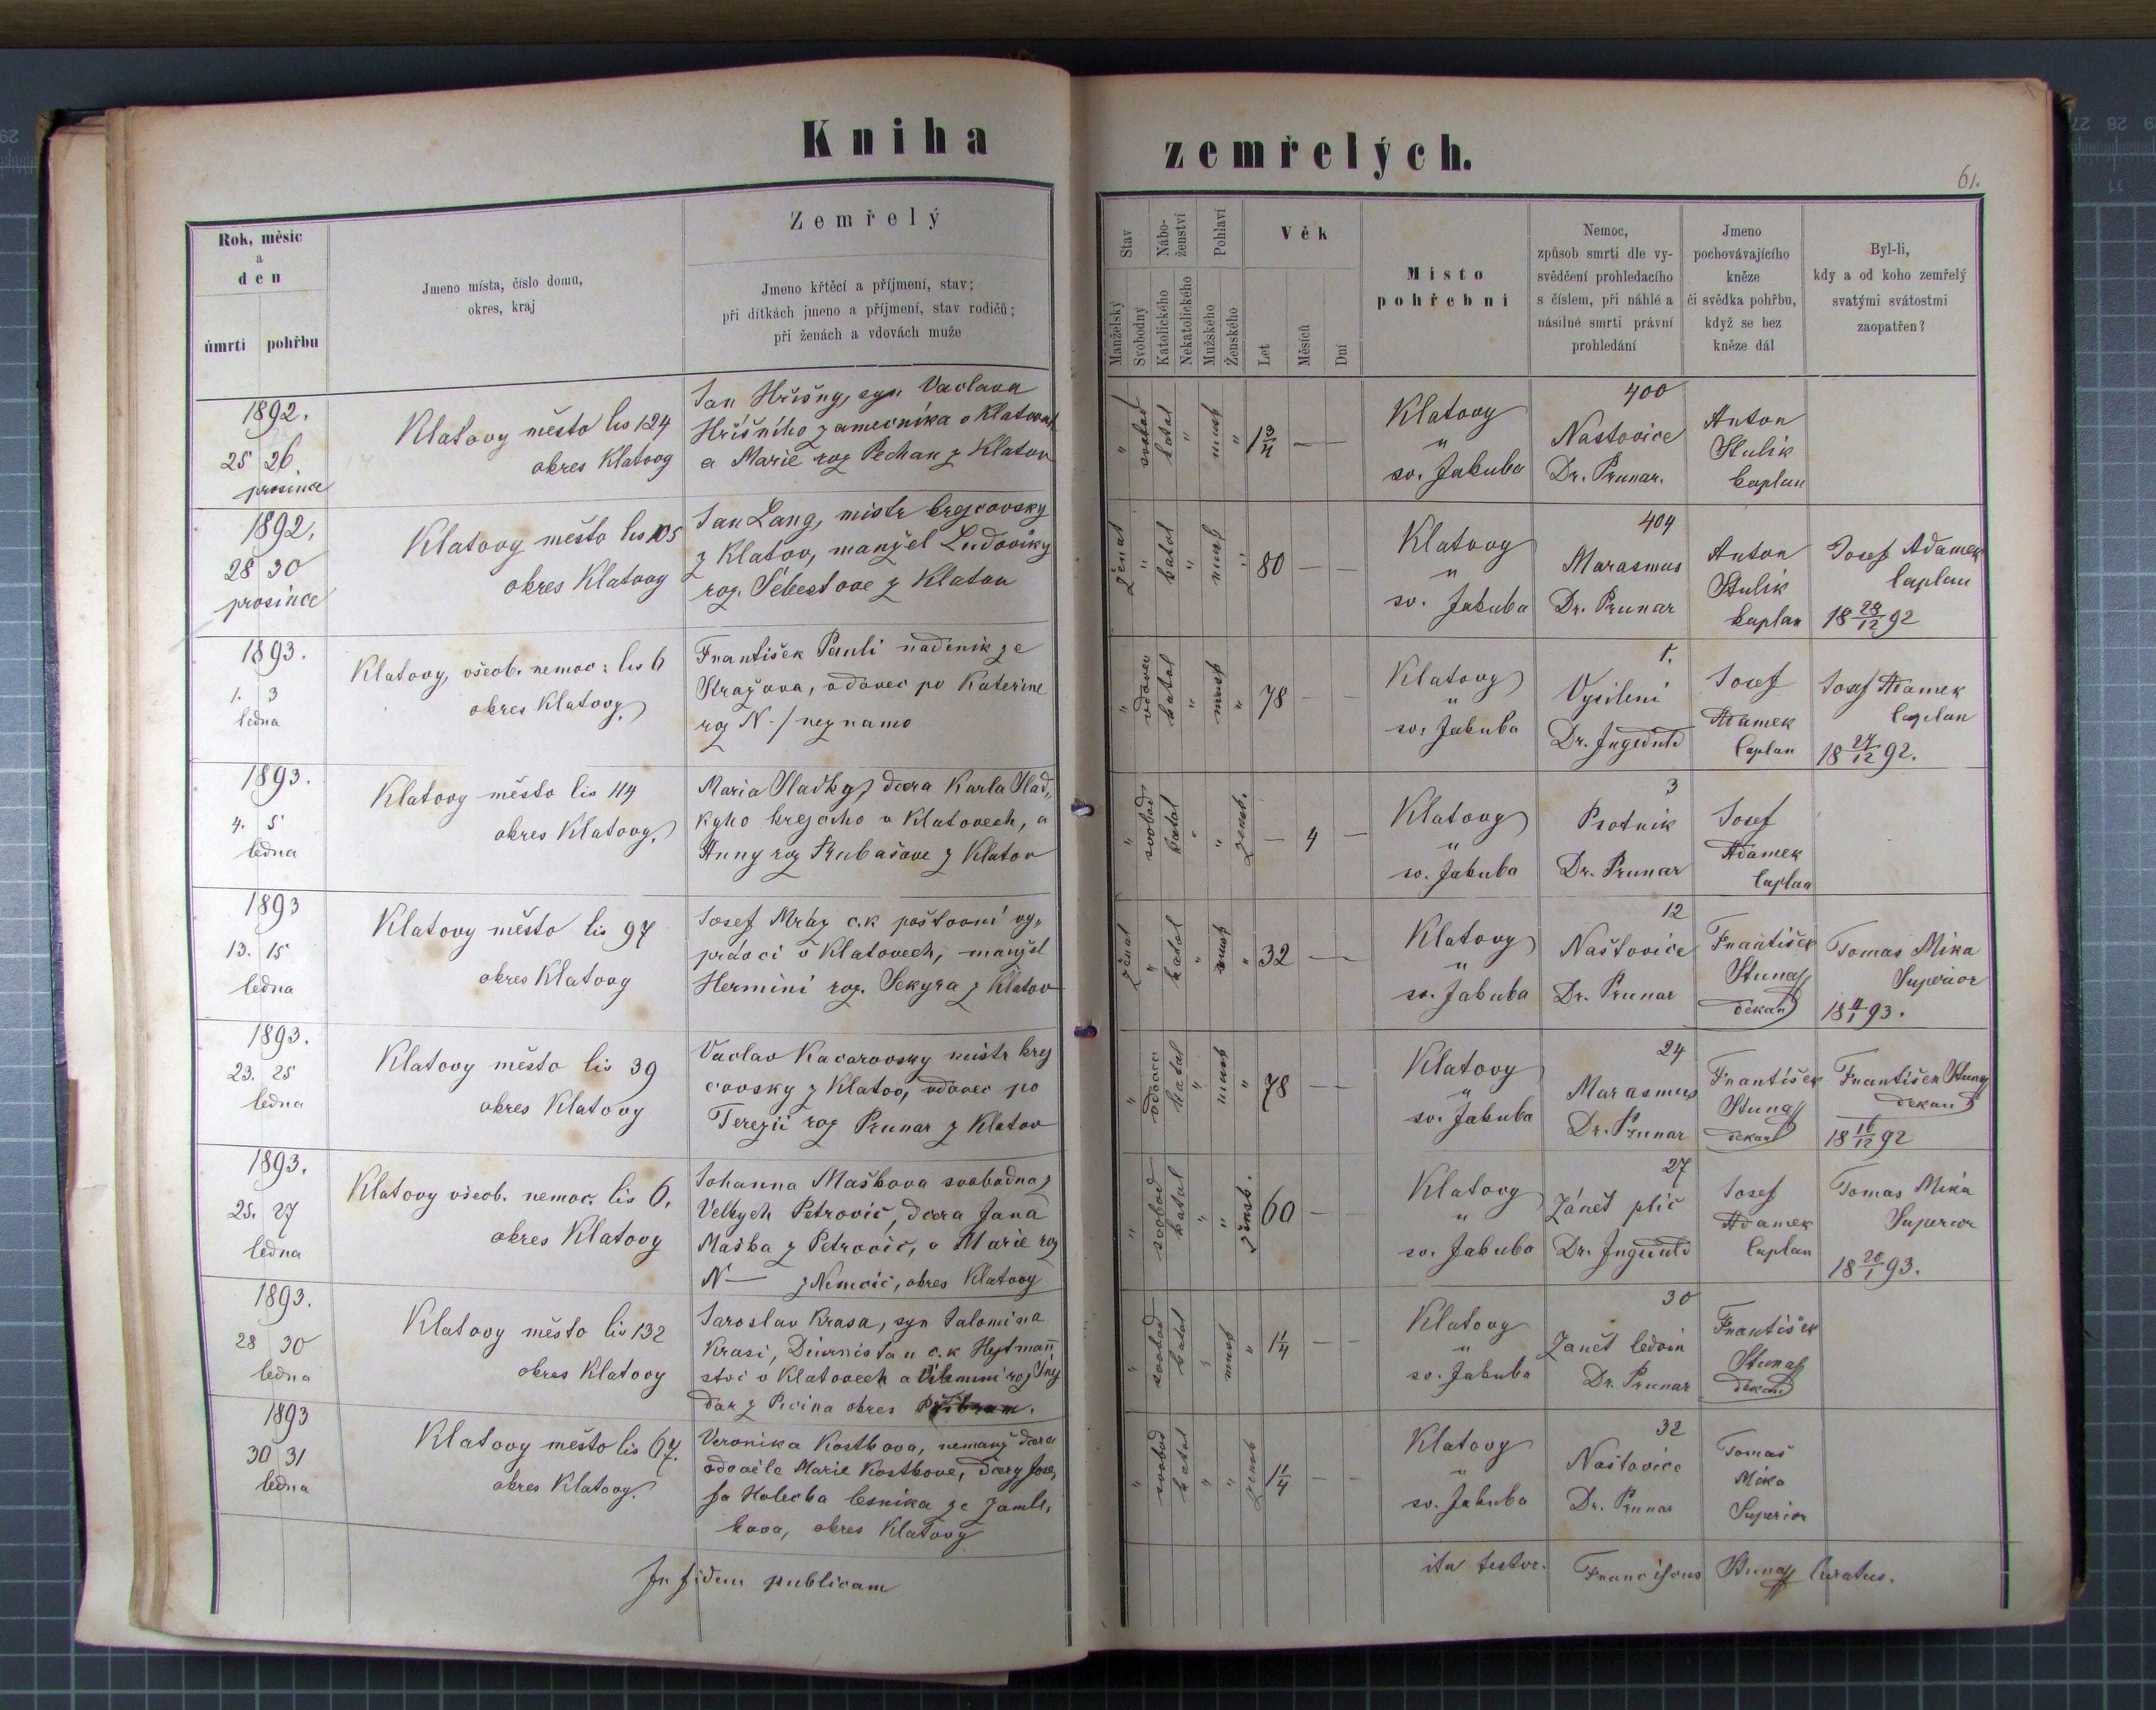 Kniha zemřelých.
61.
Rok, měsíc
a
den
úmrtí pohřbu
Jmeno místa, číslo domu,
okres, kraj
Zemřelý
Jmeno křtěcí a příjmení, stav;
při dítkách jmeno a příjmení, stav rodičů;
při ženách a vdovách muže
Stav
Manželský
Svobodný
Nábo-
ženství
Katolického
Nekatolického
Pohlaví
Mužského
Ženského
Věk
Let
Měsíců
Dní
Místo
pohřební
Nemoc,
způsob smrti dle vy-
svědčení prohledacího
s číslem, při náhlé a
násilné smrti právní
prohledání
Jmeno
pochovávajícího
kněze
či svědka pohřbu,
když se bez
kněze dál
Byl-li,
kdy a od koho zemřelý
svatými svátostmi
zaopatřen?
1892.
25 26.
prosince
Klatovy město čís 124
okres Klatovy
Jan Hříšny, syn Vaclava
Hříšního zamecníka v Klatovech
a Marie roz Pechan z Klatov
" svobod katol " musk " 1 3/4 — —
Klatovy
"
sv. Jakuba
400
Nastovice
Dr. Prunar.
Anton
Stulik
kaplan
1892,
28 30
prosince
Klatovy město čís 105
okres Klatovy
Jan Lang, mistr krejcovsky
z Klatov, manžel Ludoviky
roz. Šebestove z Klatov
Ženat " katol " musk " 80 — —
Klatovy
"
sv. Jakuba
404
Marasmus
Dr. Prunar
Anton
Stulik
kaplan
Josef Adamek
Caplan
18 28/12 92
1893.
1. 3
ledna
Klatovy, všeob. nemoc: čís 6
okres Klatovy,
František Pauli nadenik ze
Stražova, vdovec po Katerine
roz N. / neznamo
" vdovec katol " musk " 78 — —
Klatovy
"
sv. Jakuba
1.
Vysileni
Dr.
Josef
Adamek
Caplan
Josef Adamek
Caplan
18 27/12 92.
1893.
4. 5
ledna
Klatovy město čís 114
okres Klatovy,
Maria Sladky, dcera Karla Slad„
kyho krejciho v Klatovech, a
Anny roz Rubašove z Klatov
" svobod katol " " žensk. — 4 —
Klatovy
"
sv. Jakuba
3
Psotnik
Dr. Prunar
Josef
Adamek
Caplan
1893
13. 15
ledna
Klatovy město čís 97
okres Klatovy
Josef Mráz c.k poštovní vy„
právci v Klatovech, manžel
Hermini roz. Sekyra z Klatov
ženat " katol " musk " 32 — —
Klatovy
"
sv. Jakuba
12
Naštovice
Dr. Prunar
František
Stunaff
dekan
Tomas Mika
Superior
18 11/1 93.
1893.
23. 25
ledna
Klatovy město čís 39
okres Klatovy
Vaclav Kacarovsky mistr krej
covsky z Klatov, vdovec po
Terezii roz Prunar z Klatov
" vdovec katol " musk " 78 — —
Klatovy
"
sv. Jakuba
24
Marasmus
Dr. Prunar
František
Stunaff
dekan
František Stunaff
dekan
18 16/12 92
1893.
25. 27
ledna
Klatovy všeob. nemoc. čís 6,
okres Klatovy
Johanna Maškova svobodna z
Velkych Petrovic, dcera Jana
Maška z Petrovic, a Marie roz
N — z Nemcic, okres Klatovy
" svobod katol " " žensk. 60 — —
Klatovy
"
sv. Jakuba
27
Zánět plic
Dr.
Josef
Adamek
Caplan
Tomas Mika
Superior
18 20/1 93.
1893.
28 30
ledna
Klatovy město čís 132
okres Klatovy
Jaroslav Krasa, syn Salomina
Krasi, Diurnista u c.k Hejtmann
stvi v Klatovech a Vilemini roz
z Picina okres Příbram.
" svobod katol " musk " 1/4 — —
Klatovy
"
sv. Jakuba
30
Zanět ledvin
Dr. Prunar
František
Stunaff
dekan
1893
30 31
ledna
Klatovy město čís 67.
okres Klatovy.
Veronika Kostkova, nemanž dcera
ovdověle Marie Kostkove, dcery Jose„
fa Holecka lesnika ze Zamle„
kova, okres Klatovy
" svobod katol " " žensk 1 1/4 — —
Klatovy
"
sv. Jakuba
32
Naštovice
Dr. Prunar
Tomaš
Mika
Superior
In fidem publicam
ita testor. Franciscus Stunaff Curatus.